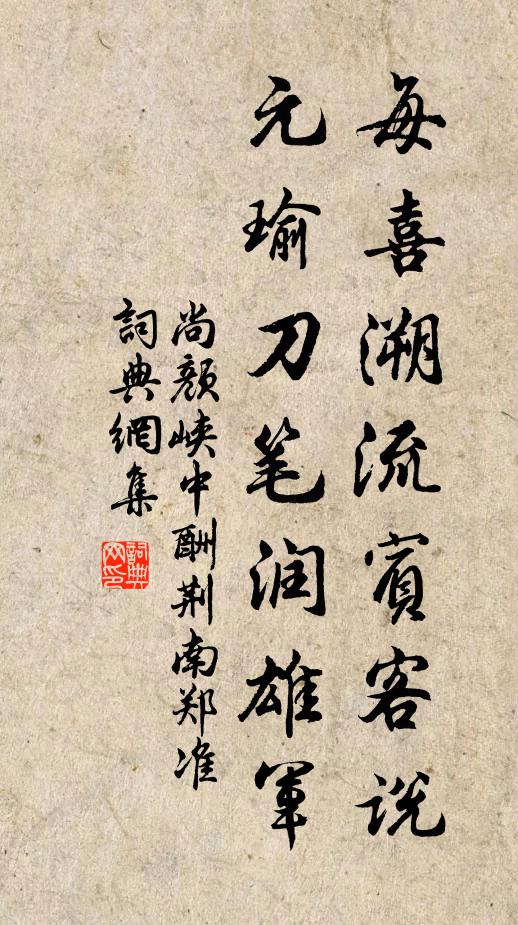 每喜溯流賓客说
元瑜刀笔润雄軍
尚颜峡中酬荆南郑准
詞典網集
詞典网印